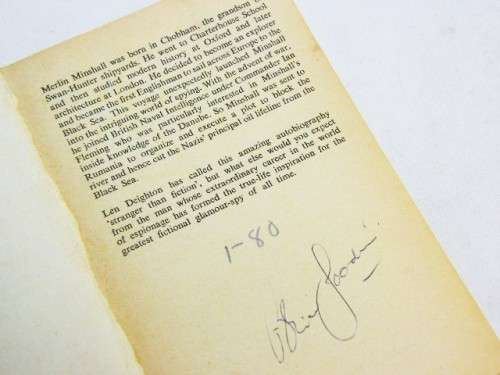 Merlin Minshall was born in Chobham, the grandson of
Swan-Hunter shipyards. He went to Charterhouse School
and then studied modern history at Oxford and later
architecture at London. He decided to become an explorer
and became the first Englishman to sail across Europe to the
Black Sea. This voyage unexpectedly launched Minshall
into the intriguing world of spying. With the advent of war,
he joined British Naval Intelligence under Commander Ian
Fleming who was particularly interested in Minshall's
inside knowledge of the Danube. So Minshall was sent to
Rumania to organize and execute a plot to block the
river and hence cut the Nazis' principal oil lifeline from the
Black Sea.
Len Deighton has called this amazing autobiography
'stranger than fiction', but what else would you expect
from the man whose extraordinary career in the world
of espionage has formed the true-life inspiration for the
greatest fictional glamour-spy of all time.
1-80